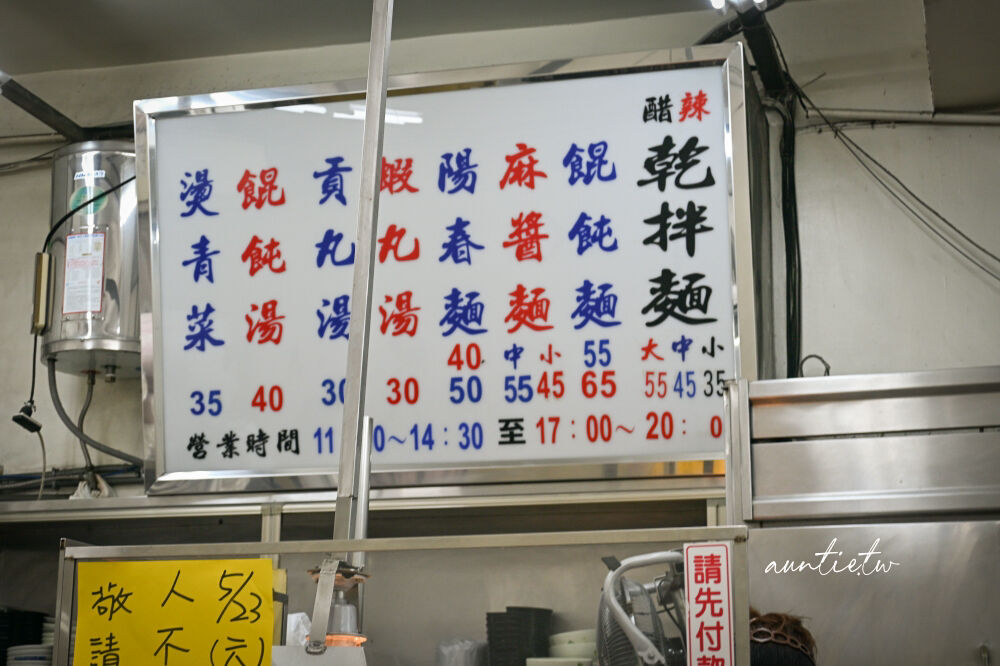 醋辣
乾拌麵
大 中 小
55 45 35
餛飩麵
55
65
麻醬麵
中 小
55 45
陽春麵
40
50
蝦丸湯
30
貢丸湯
餛飩湯
40
燙青菜
35
營業時間 11 0～14：30 至 17：00～20： 0
敬請
人不
5/23
(六)
請先付款
auntie.tw